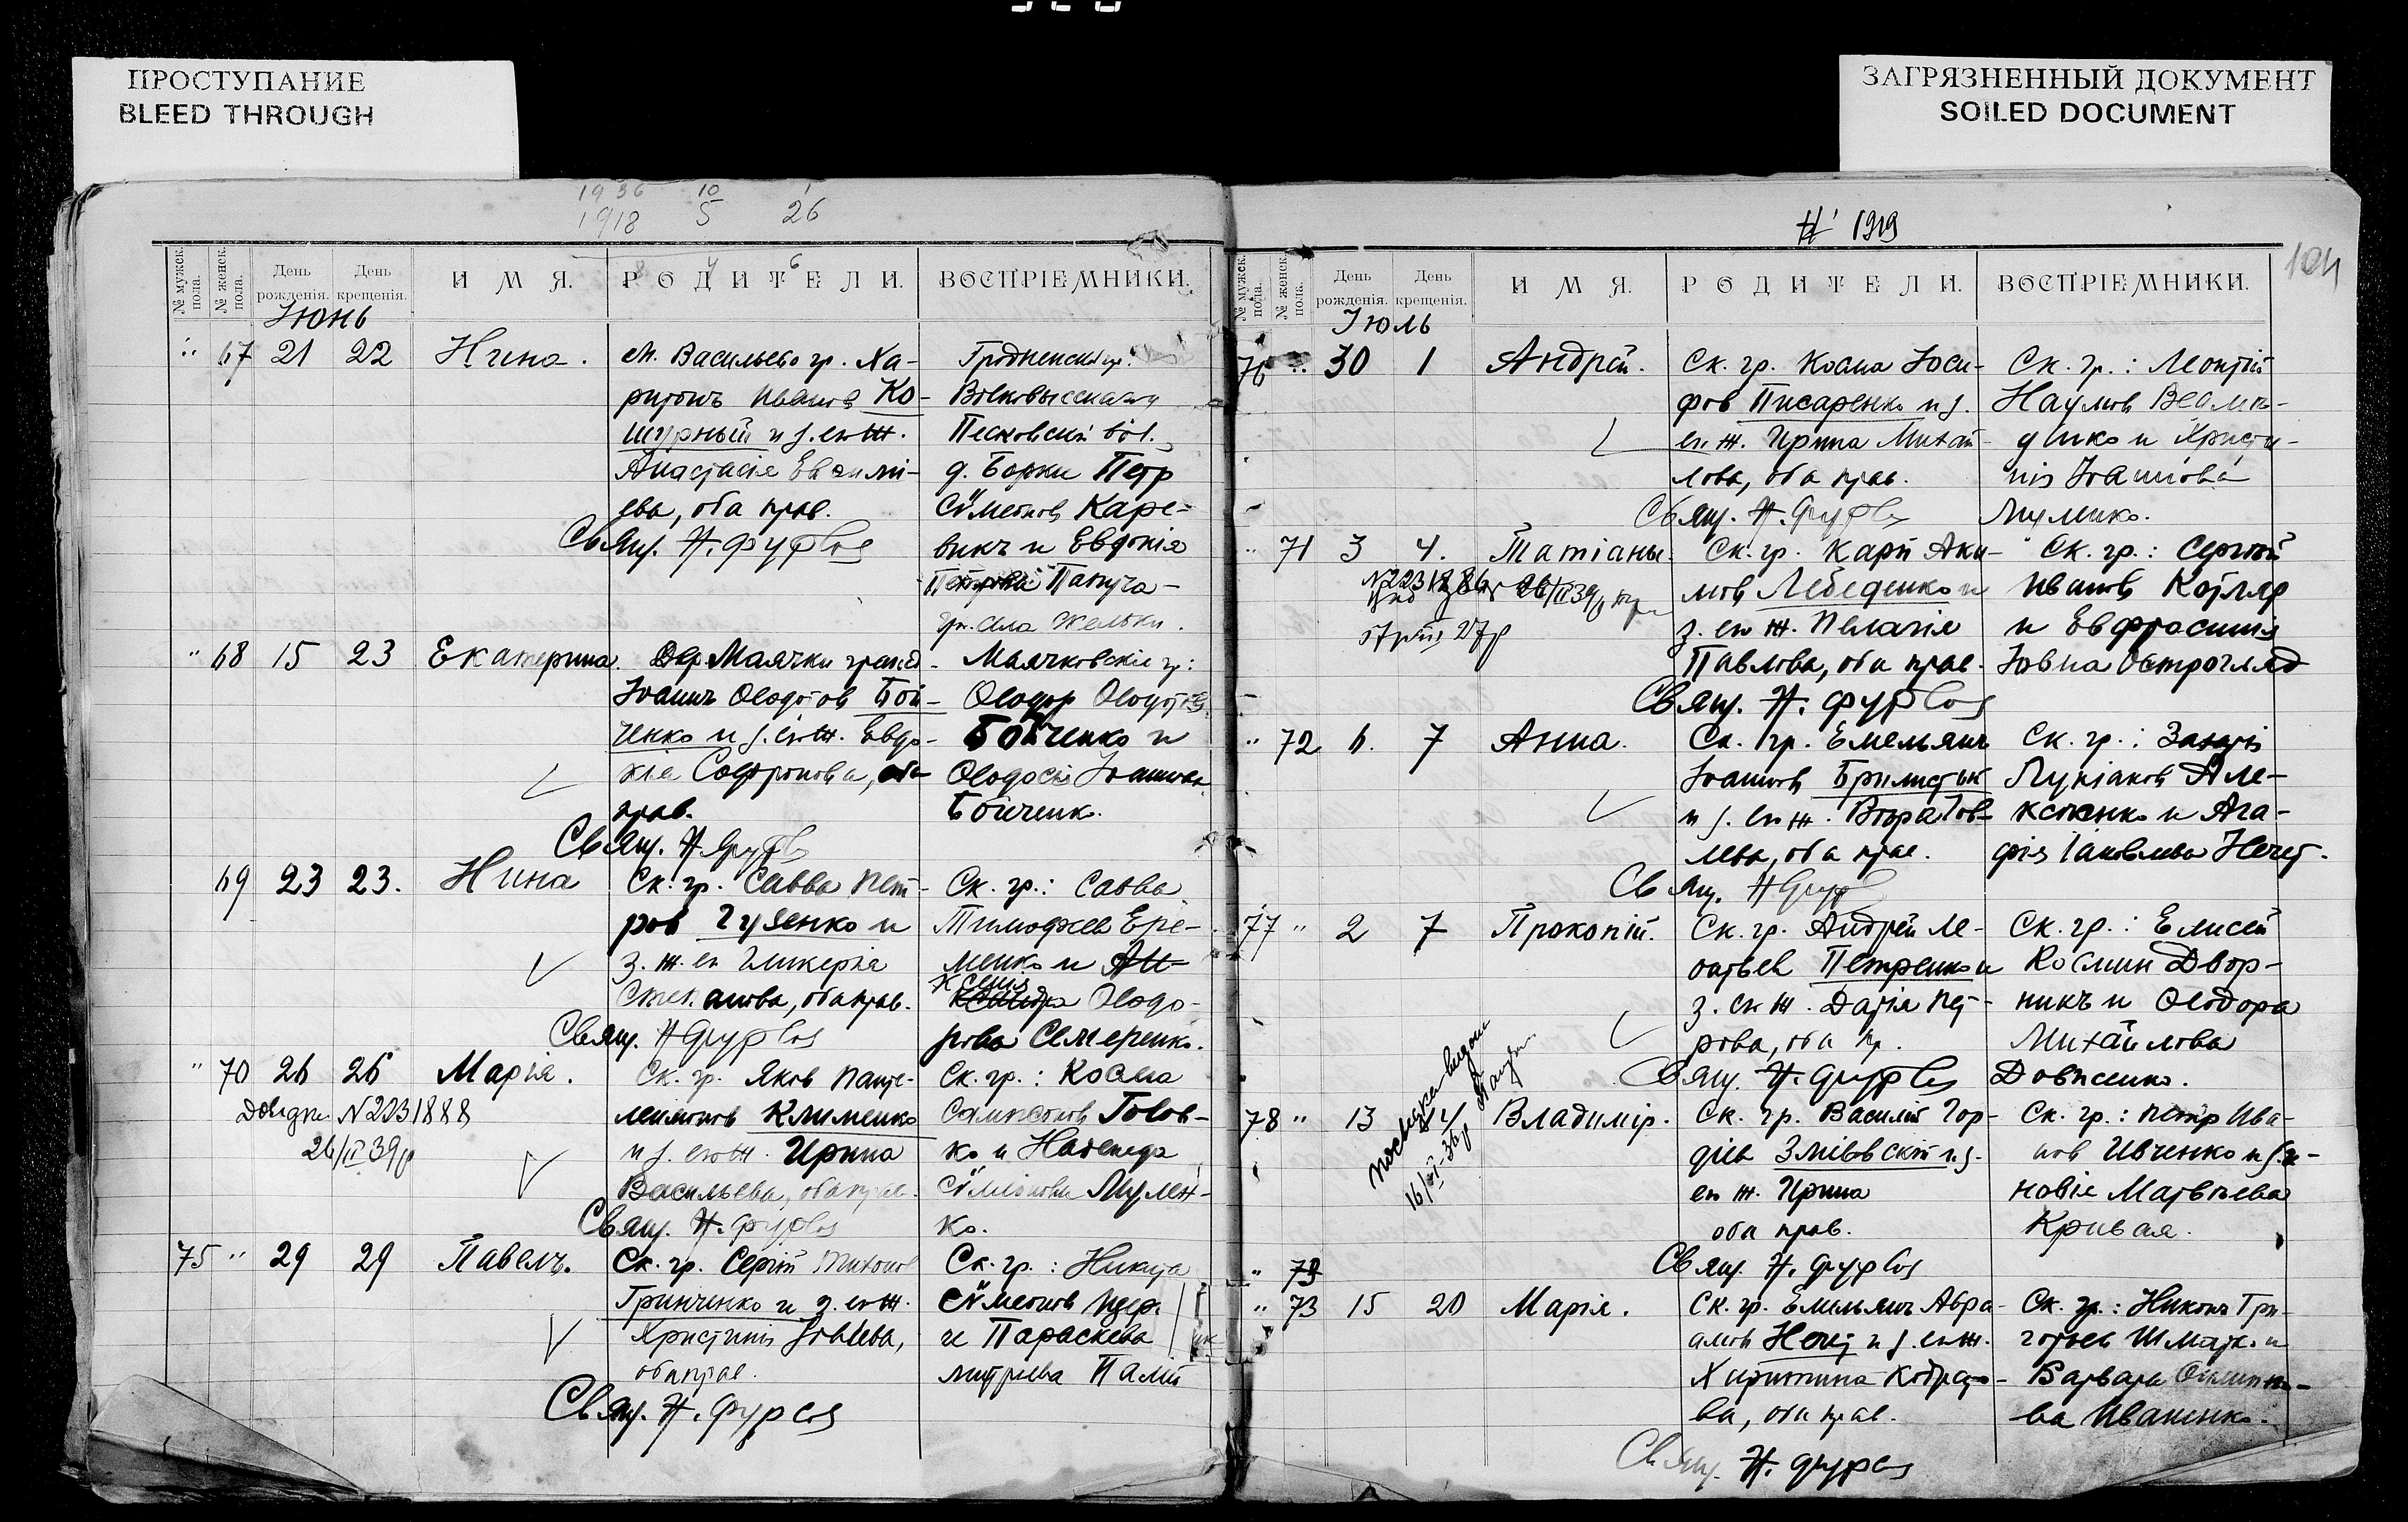 ПРОСТУПАНИЕ
BLEED THROUGH
ЗАГРЯЗНЕННЫЙ ДОКУМЕНТ
SOILED DOCUMENT
1936 10 1
1918 5 26
8 4 6
№ мужск. пола.
№ женск. пола.
День рожденія.
День крещенія.
ИМЯ.
РОДИТЕЛИ.
ВОСПРІЕМНИКИ.
Іюнь
67 21 22 Нина. м. Васильево гр. Ха-
ритонъ Иванов Ко-
шурный и з. его ж.
Анастасія Евфимі-
ева, оба прав.
Свящ. Н. Фурсов
Гродненской г.
Волковысскаго у
Песковской вол.
д. Борки Петр
Сѵмеонов Каре-
викъ и Евдокія
Папуча-
гр. села Жельки.
" 68 15 23 Екатерина. Дер. Маячки гражд-
Іоаннъ Ѳеодотов Бой-
ченко и з. его ж. Евдо-
кія Софронова, оба
прав.
Свящ. Н. Фурсов
Маячковскіе гр:
Ѳеодор Ѳеодотов
Бойченко и
Ѳеодосія Іоаннова
Бойченко.
69 23 23. Нина Ск. гр. Савва Пет-
ров Гузенко и
з. ж. ег Гликерія
Степанова, оба прав.
Свящ. Н. Фурсов
Ск. гр.: Савва
Тимофеев Ере-
менко и Ан-
Ксенія Ѳеодо-
рова Семеренко.
" 70 26 26 Марія. Ск. гр. Яков Панте-
леимонов Клименко
и з. его ж. Ирина
Васильева, оба прав.
Свящ. Н. Фурсов
Довідка №2231888
26/II 39р
Ск. гр.: Косма
Сампсонов Голов-
ко и Надежда
Сѵмеонова Лумен-
ко.
75 " 29 29 Павелъ. Ск. гр. Сергій Тихонов
Гринченко и з. его ж.
Христинія Іовлева,
оба прав.
Свящ. Н. Фурсов
Ск. гр.: Никита
Сѵмеонов
и Параскева
митріева Палій
1919
104
№ мужск. пола.
№ женск. пола.
День рожденія.
День крещенія.
ИМЯ.
РОДИТЕЛИ.
ВОСПРІЕМНИКИ.
Іюль
76 " 30 1 Андрей. Ск. гр. Косма Іоси-
фов Писаренко и з.
ег ж. Ирина Михай-
лова, оба прав.
Свящ. Н. Фурсов
Ск. гр.: Леонтій
Наумов Ведмѣ-
денко и Христи-
нія Іоаннова
Луменко.
" 71 3 4. Татіана. Ск. гр. Карп Аки-
мов Лебеденко и
з. ег ж. Пелагія
Павлова, оба прав.
Свящ. Н. Фурсов
Ск. гр.: Сергій
Иванов Котляр
и Евфросинія
Іовна Острогляд
" 72 6. 7 Анна. Ск. гр. Емельянъ
Іоаннов
и з. ег ж. Вѣра Іов-
лева, оба прав.
Свящ. Н. Фурсов
Ск. гр.: Захарія
Лукіанов Але-
ксеенко и Ага-
фія Іаковлева Нечет.
77 " 2 7 Прокопій. Ск. гр. Андрей Ле-
онтьев Петренко и
з. ег ж. Дарія Пет-
рова, оба пр.
Свящ. Н. Фурсов
Ск. гр.: Елисей
Космин Двор-
никъ и Ѳеодора
Михайлова
Довженко.
78 " 13 14 Владимір. Ск. гр. Василій Гор-
діев Зміевскій и з.
ег ж. Ирина
оба прав.
Свящ. Н. Фурсов
16/VI-36р
Ск. гр.: Петр Ива-
нов Ивченко и Зи-
новія Матвѣева
Кривая.
" 79
" 73 15 20 Марія. Ск. гр. Емельянъ Авра-
амов Нечет и з. его ж.
Харитина Кондрато-
ва, оба прав.
Свящ. Н. Фурсов
Ск. гр.: Никонъ Гри-
горьев Шматко и
Варвара
ва Иваненко.